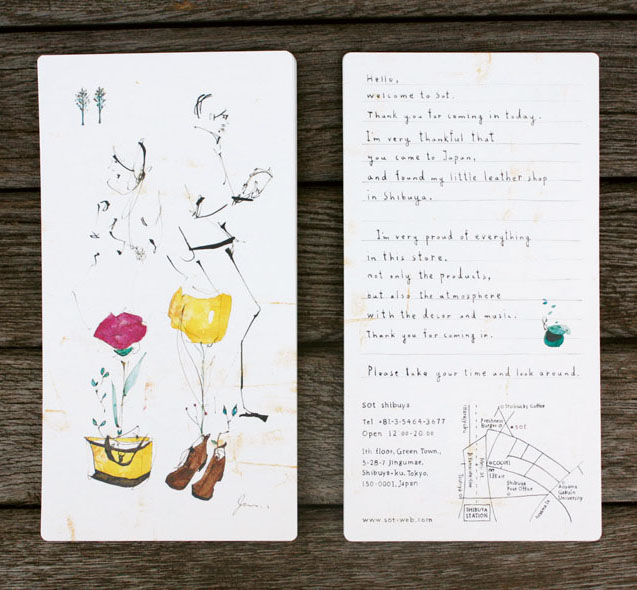 Hello,
welcome to Sot.
Thank you for coming in today.
I'm very thankful that
you came to Japan,
and found my little leather shop
in Shibuya.
I'm very proud of everything
in this store.
not only the products,
but also the atmosphere
with the decor and music.
Thank you for coming in.
Please take your time and look around.
sot shibuya
Tel +81-3-5464-3677
Open 12:00-20:00
1th floor, Green Town.,
5-28-7 Jingumae,
Shibuya-ku, Tokyo,
150-0001, Japan
www.sot-web.com
Starbucks Coffee
Freshness
Burger
sot
COCOTI
Shibuya
Post Office
Aoyama
Gakuin
University
SHIBUYA
STATION